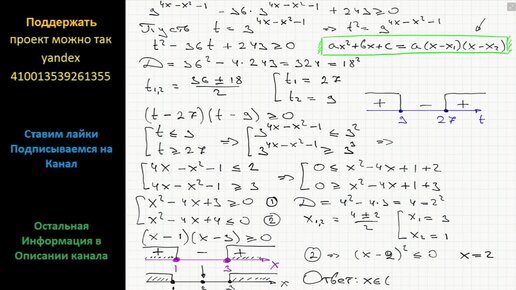 Поддержать
проект можно так
yandex
410013539261355
Ставим лайки
Подписываемся на
Канал
Остальная
Информация в
Описании канала
9^{4x-x²-1} - 36·3^{4x-x²-1} + 243 ≥ 0
Пусть t = 3^{4x-x²-1} ⇒ t² = 9^{4x-x²-1}
t² - 36t + 243 ≥ 0
ax²+bx+c = a(x-x₁)(x-x₂)
D = 36² - 4·243 = 324 = 18²
t₁,₂ = (36 ± 18)/2 [ t₁ = 27
t₂ = 9
+ - +
9 27 t
(t-27)(t-9) ≥ 0
[ t ≤ 9 ⇒ [ 3^{4x-x²-1} ≤ 3²
t ≥ 27 3^{4x-x²-1} ≥ 3³
[ 4x-x²-1 ≤ 2 ⇒ [ 0 ≤ x²-4x+1+2
4x-x²-1 ≥ 3 0 ≥ x²-4x+1+3
[ x²-4x+3 ≥ 0 ① D = 4²-4·3 = 4 = 2²
x²-4x+4 ≤ 0 ② x₁,₂ = (4 ± 2)/2 [ x₁ = 3
x₂ = 1
(x-1)(x-3) ≥ 0
+ - +
1 3 x
② ⇒ (x-2)² ≤ 0 x = 2
1 3 x
Ответ: x∈(